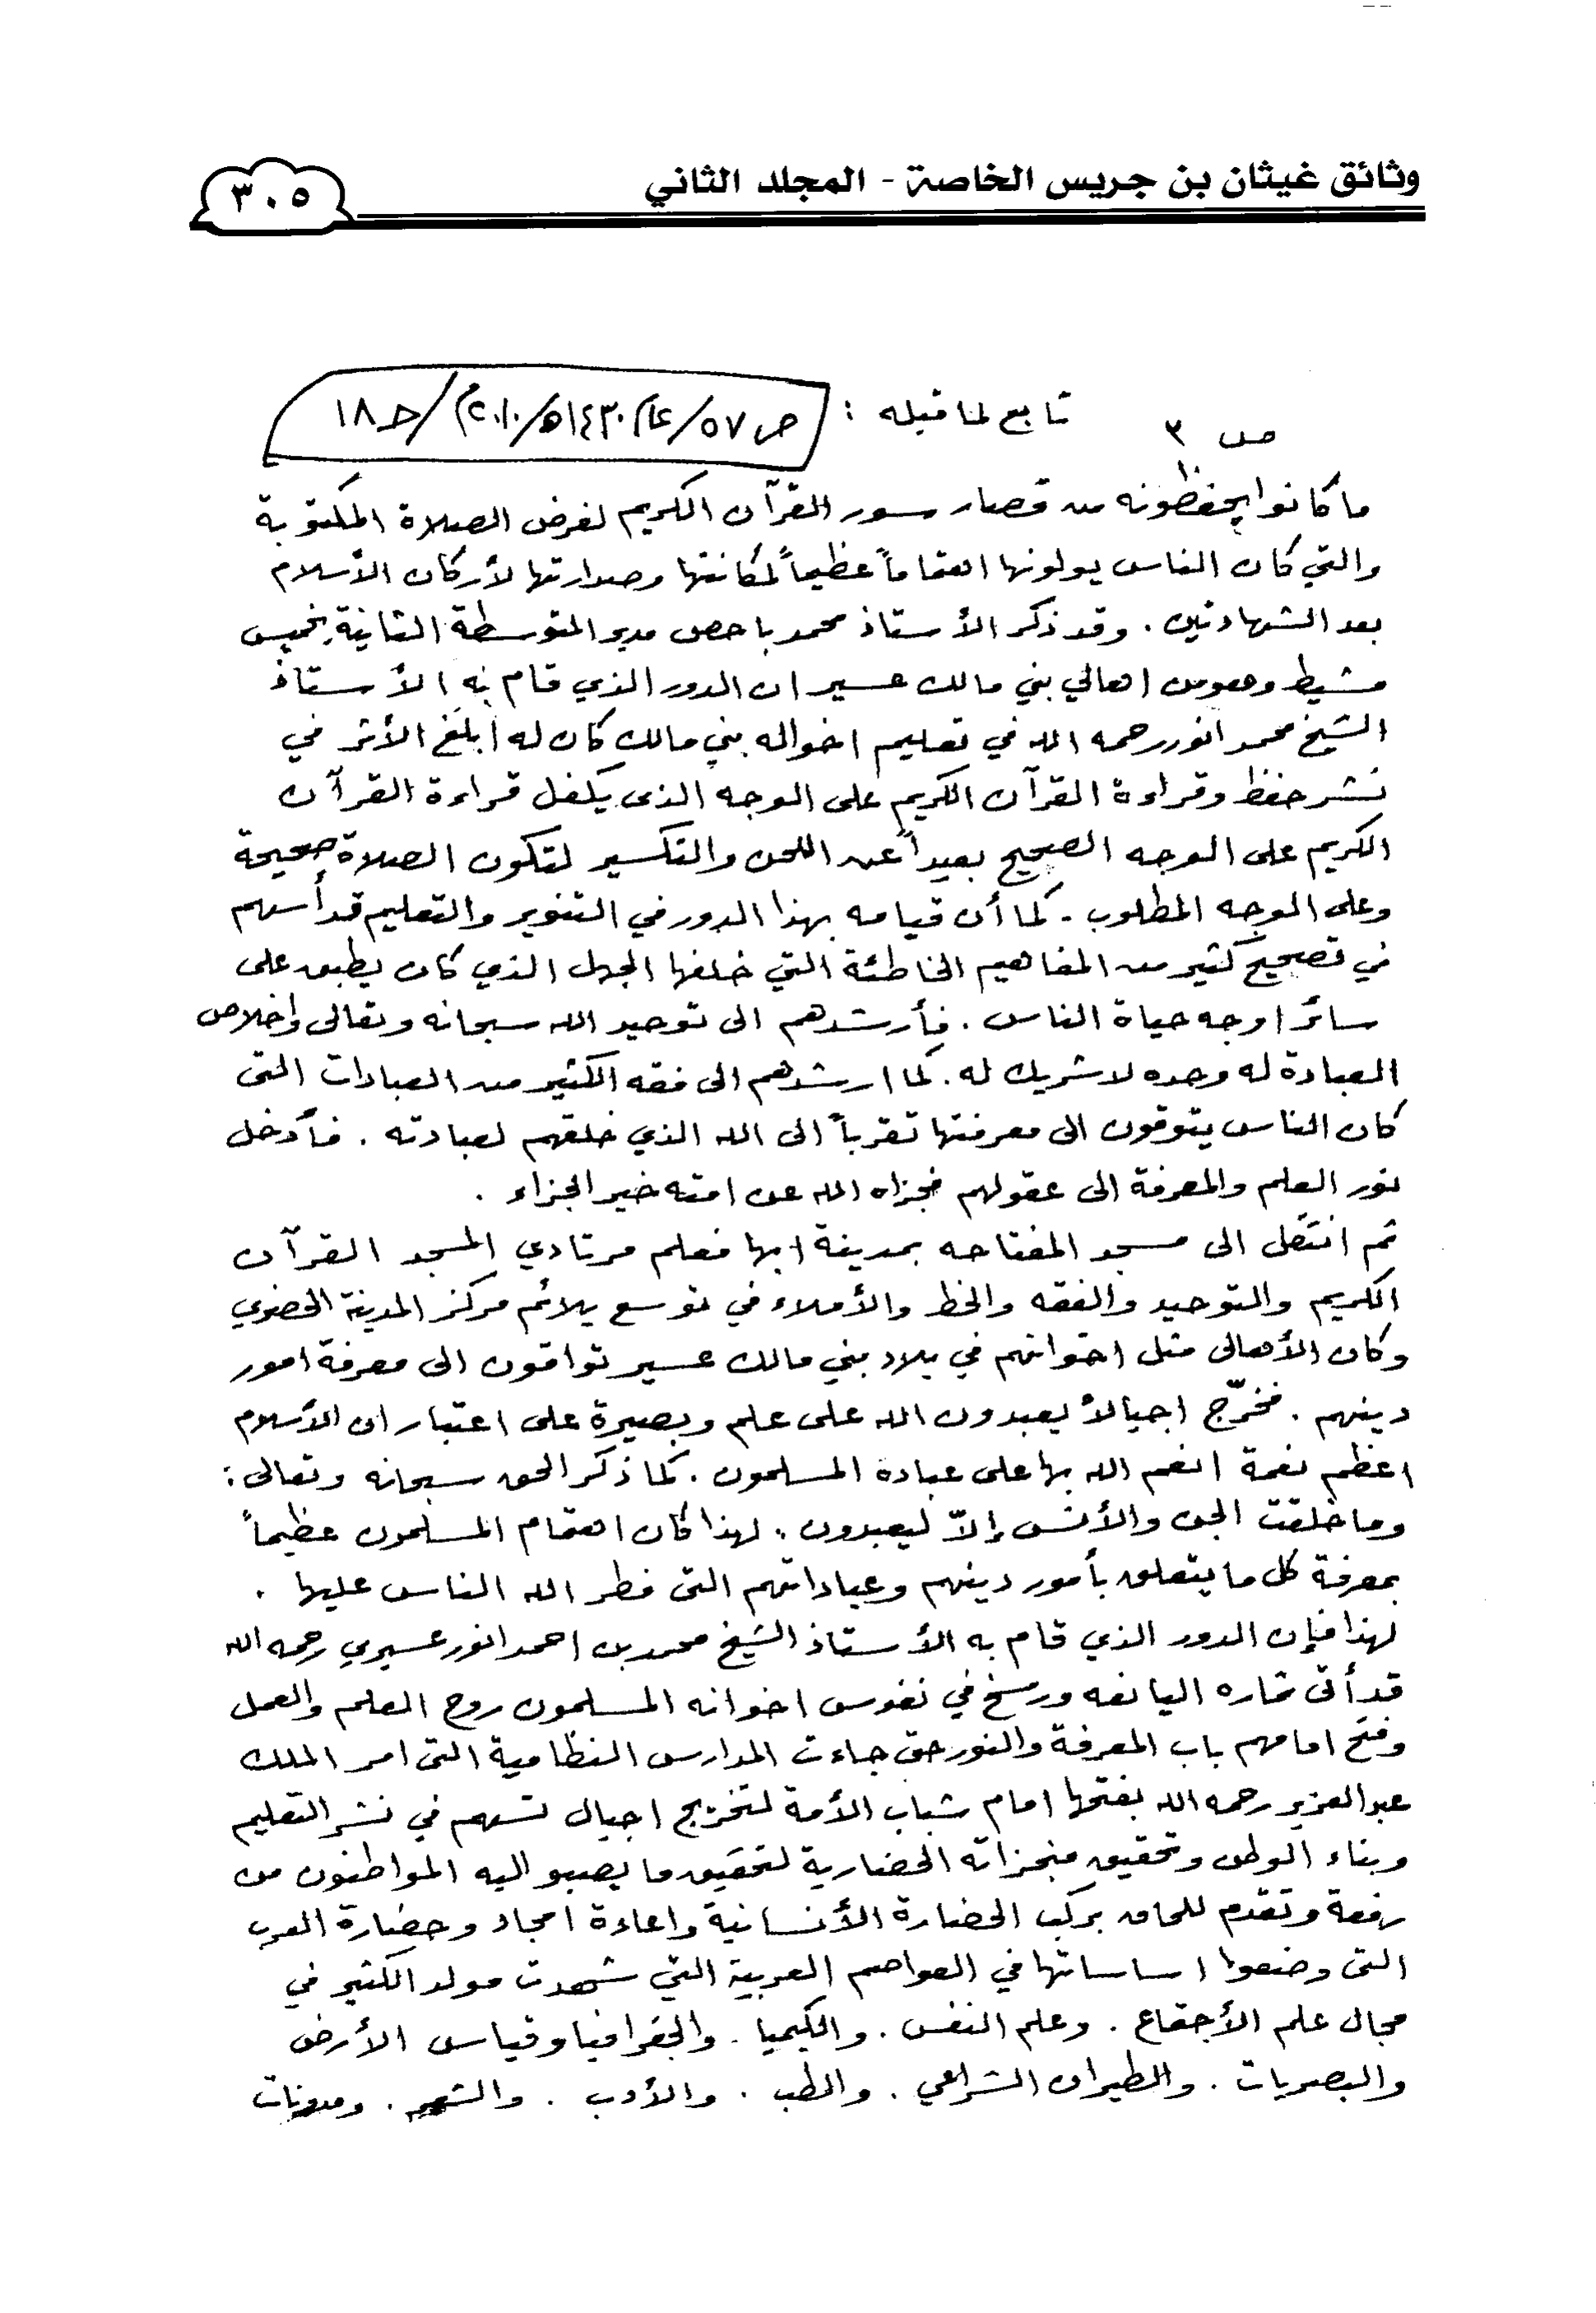 وثائق غيثان بن جريس الخاصة - المجلد الثاني
٣٠٥
ص ٣ تابع لما قبله :
ما كانوا يحفظونه من قصار سور القرآن الكريم لفرض الصلاة المكتوبة
والتي كان الناس يولونها اهتماماً عظيماً لمكانتها وصدارتها لأركان الأسلام
بعد الشهادتين . وقد ذكر الأستاذ محمد باحص مدير المتوسطة الثانية بخميس
مشيط وهو من اهالي بني مالك عسير ان الدور الذي قام به الأستاذ
الشيخ محمد انور رحمه الله في تعليم اخواله بني مالك كان له أبلغ الأثر في
نشر حفظ وقراءة القرآن الكريم على الوجه الذى يكفل قراءة القرآن
الكريم على الوجه الصحيح بعيداً عن اللحن والتكسير لتكون الصلاة صحيحة
وعلى الوجه المطلوب . كما أن قيامه بهذا الدور في التنوير والتعليم قد أسهم
في تصحيح كثير من المفاهيم الخاطئة التي خلفها الجهل الذي كان يطبق على
سائر اوجه حياة الناس . فأرشدهم الى توحيد الله سبحانه وتعالى واخلاص
العبادة له وحده لا شريك له . كما ارشدهم الى فقه الكثير من العبادات التى
كان الناس يتوقون الى معرفتها تقرباً الى الله الذي خلقهم لعبادته . فأدخل
نور العلم والمعرفة الى عقولهم فجزاه الله عن امته خير الجزاء .
ثم انتقل الى مسجد المفتاحه بمدينة ابها فعلم مرتادي المسجد القرآن
الكريم والتوحيد والفقه والخط والأملاء في توسع يلائم مركز المدينة الحضوي
وكان الأهالى مثل اخوانهم في بلاد بني مالك عسير تواقون الى معرفة امور
دينهم . فخرّج اجيالاً يعبدون الله على علم وبصيرة على اعتبار ان الأسلام
اعظم نعمة انعم الله بها على عباده المسلمون . كما ذكر الحق سبحانه وتعالى :
وما خلقت الجن والأنس إلاّ ليعبدون . لهذا كان اهتمام المسلمون عظيماً
بمعرفة كل ما يتعلق بأمور دينهم وعباداتهم التى فطر الله الناس عليها .
لهذا فإن الدور الذي قام به الأستاذ الشيخ محمد بن احمد انور عسيري رحمه الله
قد أتى ثماره اليانعه ورسخ في نفوس اخوانه المسلمون روح العلم والعمل
وفتح امامهم باب المعرفة والنور حتى جاءت المدارس النظامية التى امر الملك
عبد العزيز رحمه الله بفتحها امام شباب الأمة لتخريج اجيال تسهم في نشر التعليم
وبناء الوطن وتحقيق منجزاته الحضارية لتحقيق ما يصبو اليه المواطنون من
رفعة وتقدم للحاق بركب الحضارة الأنسانية واعادة امجاد وحضارة العرب
التى وضعوا اساساتها في العواصم العربية التي شهدت مولد الكثير في
مجال علم الأجتماع . وعلم النفس . والكيميا . والجغرافيا وقياس الأرض
والبصريات . والطيران الشراعي . والطب . والأدب . والشعر . ومدونات